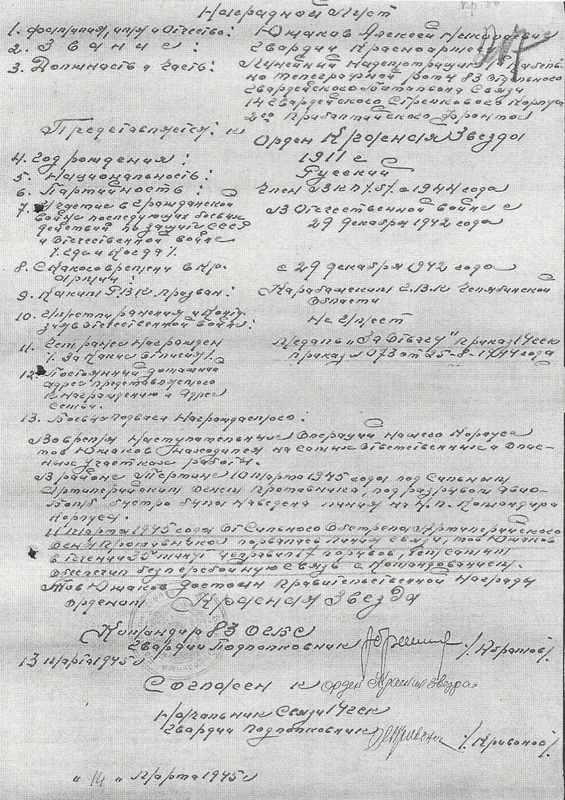 Наградной лист
1. Фамилия, имя и отчество: Южаков Алексей
2. Звание: Гвардии Красноармеец
3. Должность и часть: Линейный Надсмотрщик
но Телеграфной роты 83 Отдельного
Гвардейского Батальона Связи
14 Гвардейского Стрелкового Корпуса
2го Прибалтийского Фронта
Представляется: к Орден Красная Звезда
4. Год рождения: 1911 г
5. Национальность: Русский
6. Партийность: Член ВКП/б/ с 1944 года
7. Участие в Гражданской В Отечественной войне с
войне последующих боевых 29 декабря 1942 года
действий по защите СССР
и Отечественной войне
/ где и когда /.
8. С какого времени в Кр. с 29 декабря 1942 года
Армии:
9. Каким РВК призван: Карабашским Г.В.К Челябинской
Области
10. Имеет ли ранения и Не имеет
в Отечественной войне:
11. Чем ранее награжден Медаль "За Отвагу" приказ 14 ГСК
/ За какие отличия /. приказ № 073 от 25-8-1944 года
12. Постоянный домашний
адрес представляемого
к Награждению и Адрес
Семьи.
13. Боевых подвига Награждаемого:
Во время Наступательных Операций Нашего Корпуса
тов Южаков находился на самых Ответственных и Опас-
ных участках работы.
В районе 10 Марта 1945 года под Сильным
Артиллерийским Огнем Противника, под разрывом Авио-
бомб быстро была наведена линия на Н.П. Командира
Корпуса.
11 Марта 1945 года От Сильного Обстрела Артиллерийского
Огня Противника порвалась линия связи, тов Южаков
в течении 35 минут исправил 17 порывов, Тем самым
Обеспечил бесперебойную Связь с Командованием.
Тов Южаков Достоин Правительственной Награды
Орденом Красная Звезда
Командир 83 ОГБС
Гвардии Подполковник
13 Марта 1945 г
Согласен к Орден Красная Звезда
Начальник Связи 14 ГСК
Гвардии Подполковник / Кривонос /.
" 14 " Марта 1945 г